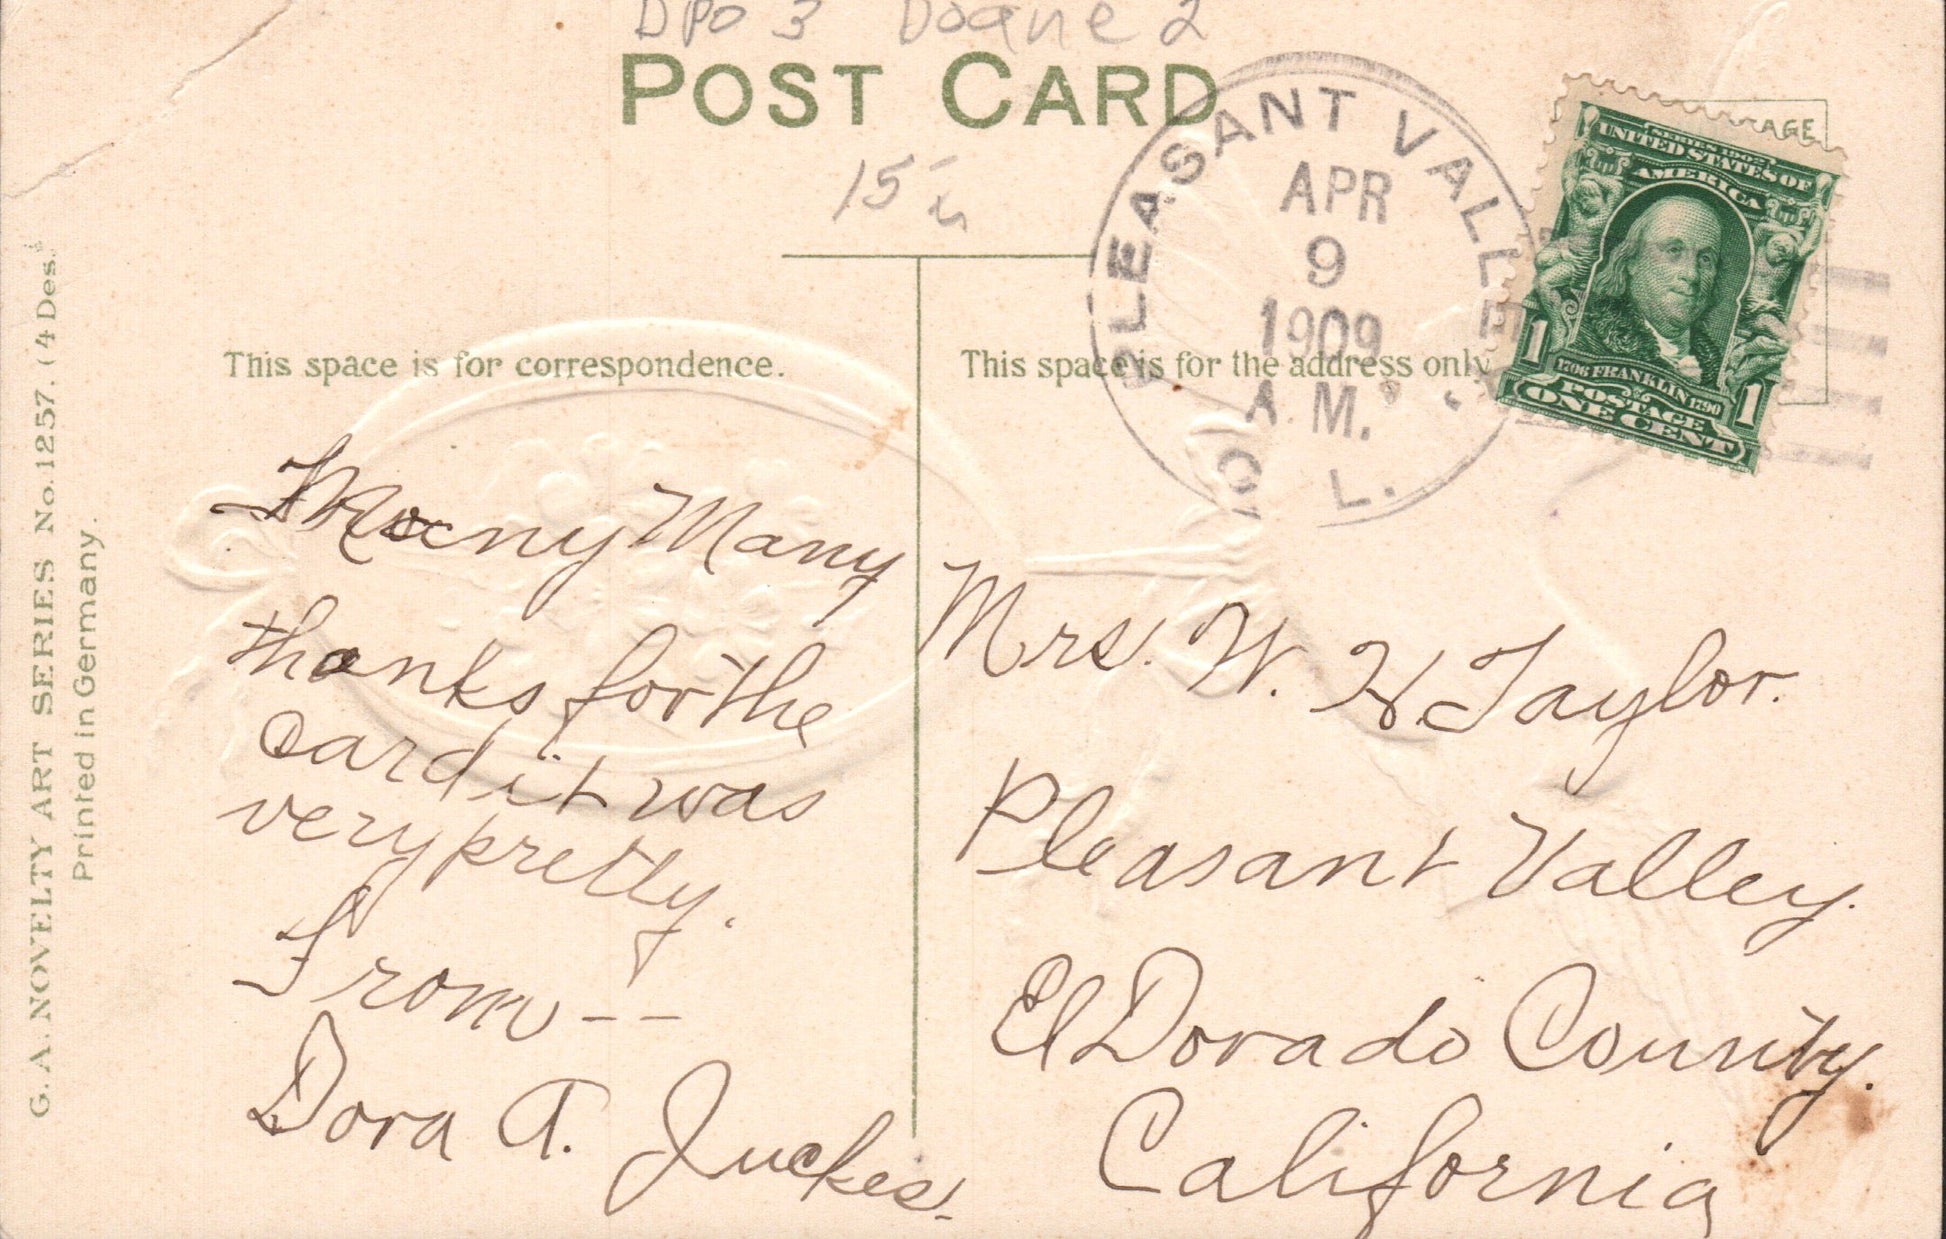 DPO 3 Doane 2
POST CARD
15
PLEASANT VALLEY
APR
9
1909
A.M.
CAL.
AGE
SERIES 1902
UNITED STATES OF
AMERICA
1706 FRANKLIN 1790
POSTAGE
1 ONE CENT 1
This space is for correspondence.
This space is for the address only
Many Many
thanks for the
card it was
very pretty.
From --
Dora A. Juckes.
Mrs. W. H. Taylor.
Pleasant Valley.
El Dorado County.
California
G. A. NOVELTY ART SERIES No. 1257. (4 Des.)
Printed in Germany.